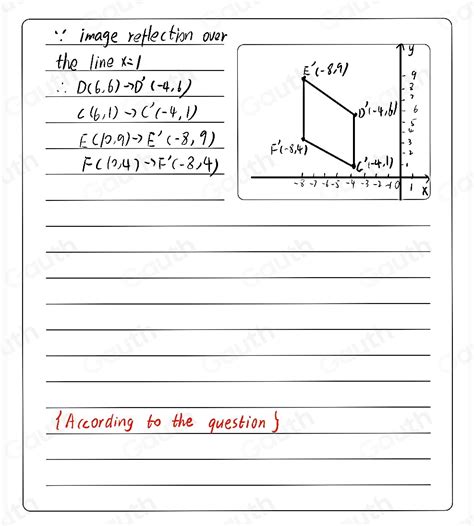 ∵ image reflection over
the line x=1
∴ D(6,6)→D'(-4,6)
C(6,1)→C'(-4,1)
E(10,9)→E'(-8,9)
F(10,4)→F'(-8,4)
y
E'(-8,9)
D'(-4,6)
F'(-8,4)
C'(-4,1)
9
8
7
6
5
4
3
2
1
-8 -7 -6 -5 -4 -3 -2 -1 0 1 x
{According to the question}
Gauth